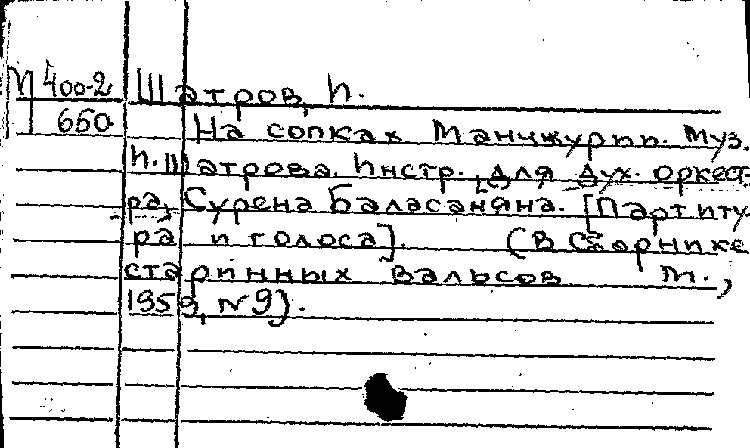 М 400-2
650
Шатров, И.
На сопках Манчжурии. Муз.
И. Шатрова. Инстр. для дух. оркест-
ра Сурена Баласаняна. [Партиту-
ра и голоса]. (В Сборнике
старинных вальсов М.,
1959, № 9).